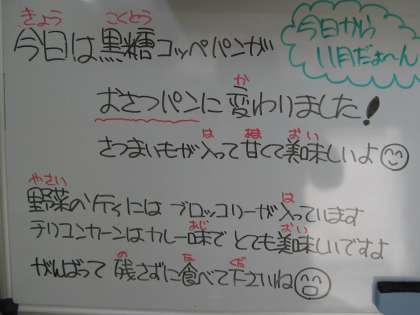 きょう こくとう
今日は黒糖コッペパンが
今日から
11月だよ〜ん
か
おさつパンに変わりました!
は あま おい
さつまいもが入って甘くて美味しいよ
やさい は
野菜のソティにはブロッコリーが入っています
あじ おい
テリコンカーンはカレー味でとても美味しいですよ
のこ た くだ
がんばって残さずに食べて下さいね